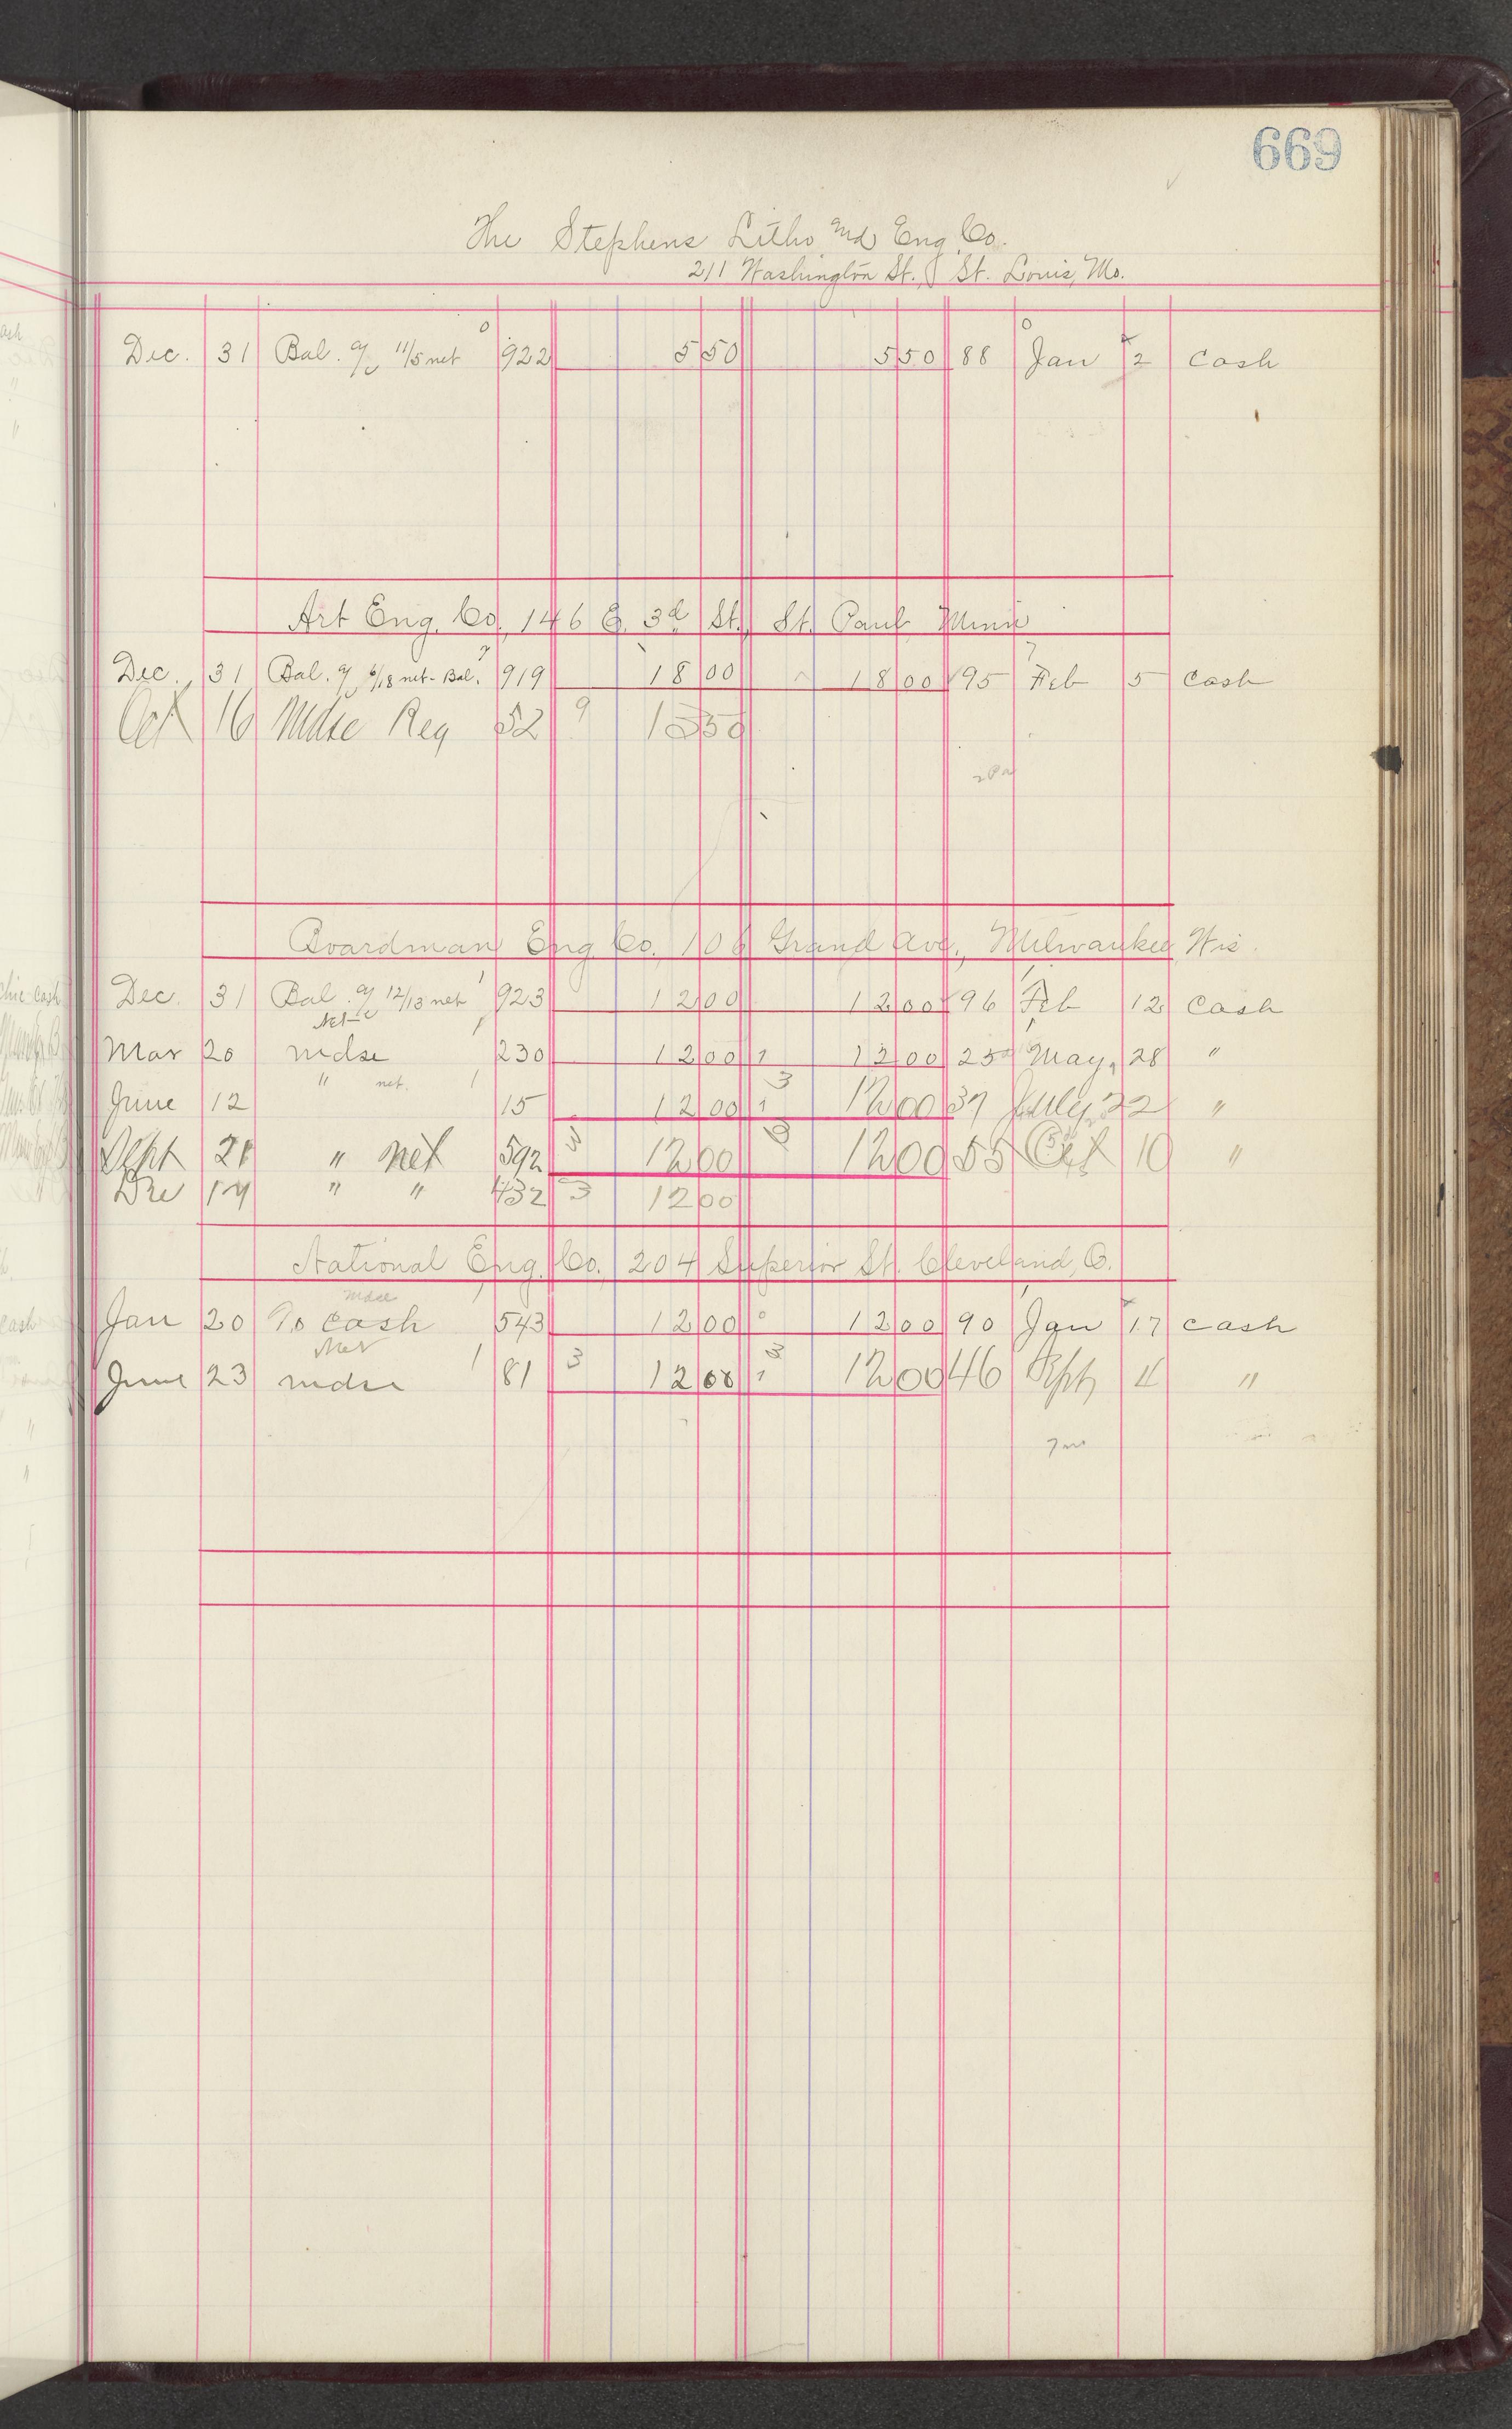 669
The Stephens Litho and Eng. Co.
211 Washington St., St. Louis, Mo.
Dec. 31 Bal. a/c 11/5 net 0 922 5 50 5 50 88 0 Jan 2 Cash
Art Eng. Co., 146 E. 3d St., St. Paul Minn
Dec. 31 Bal. a/c 6/18 net - Bal. 919 18 00 18 00 95 7 Feb 5 Cash
Oct 16 Mdse Reg 52 9 13 50
Boardman Eng. Co., 106 Grand Ave., Milwaukee, Wis.
Dec. 31 Bal a/c 12/13 net 1 923 12 00 12 00 96 Feb 12 Cash
Net
Mar 20 mdse 1 230 12 00 1 12 00 25 May, 28 "
" net. 1 3
June 12 15 12 00 1 12 00 37 July 22 "
Sept 21 " net 592 3 12 00 12 00 55 Oct 10 "
Dec 14 " " 432 3 12 00
National Eng. Co., 204 Superior St. Cleveland, O.
mdse
Jan 20 To Cash 543 12 00 0 12 00 90 Jan 17 Cash
Net 3
June 23 mdse 1 81 3 12 00 1 12 00 46 Sept 11 "